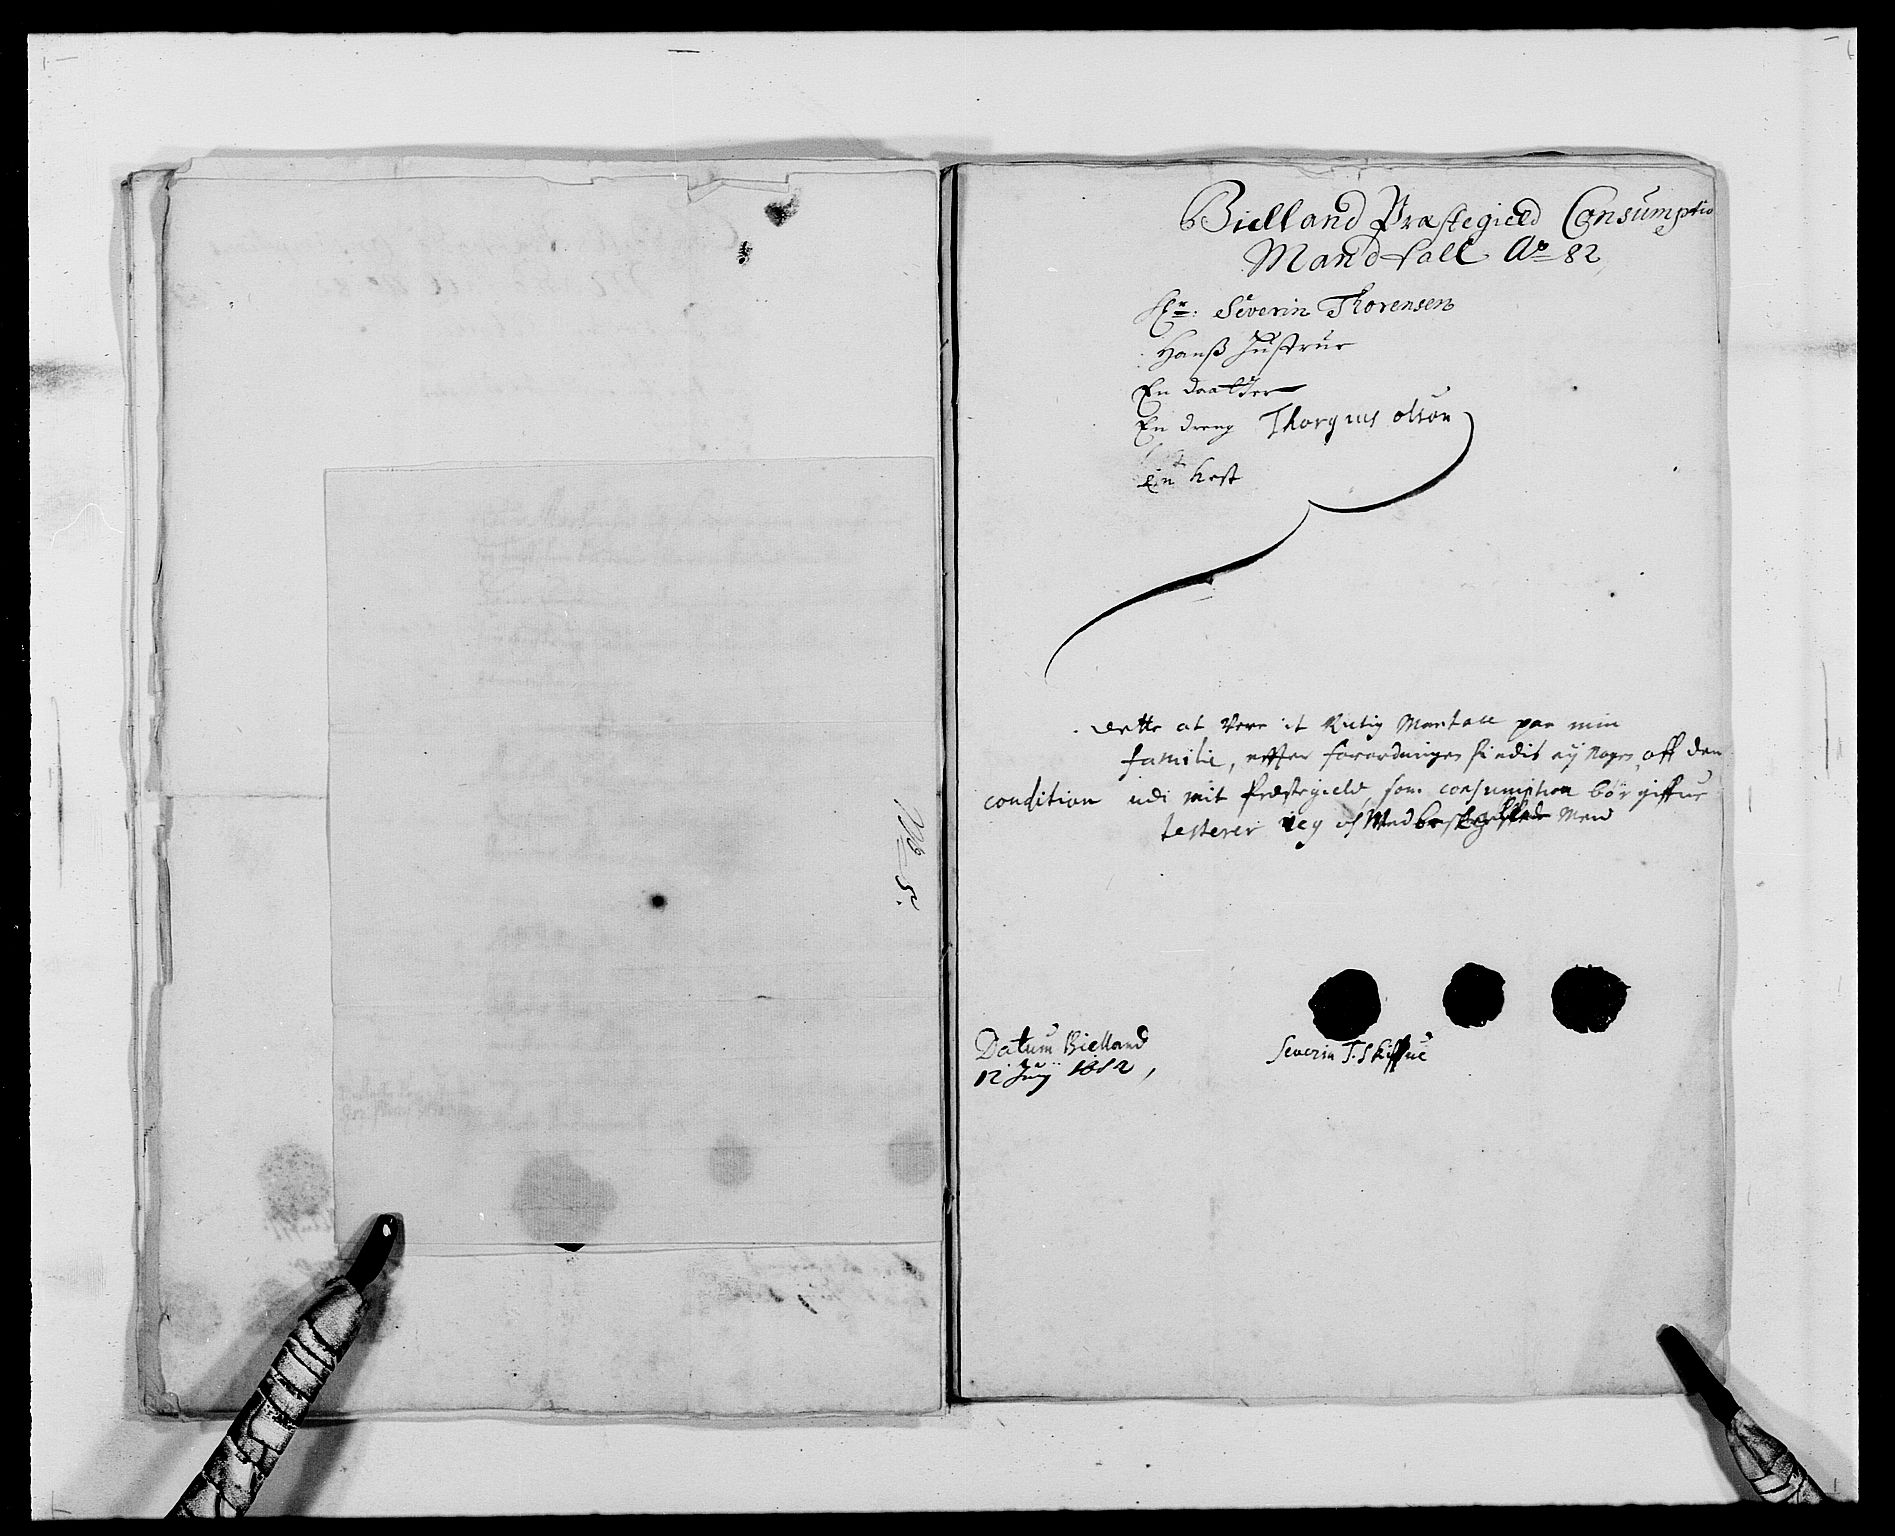 No 5.
Bielland Præstegield Consumptio
Mandtall Ao 82
Hr: Severin Thorensen
Hanß Hustrue
En daatter
En dreng Thorgius olsøn
Ein hest
Dette at Vere it Rictig Mantall paa min
familie, effter forordningen findis ej Nogen aff den
condition udi mit Præstegield, som consumption bør giffue
testerer ieg Med Mend
Datum Bielland
12 Juny 1682,
Severin T. Skiffue